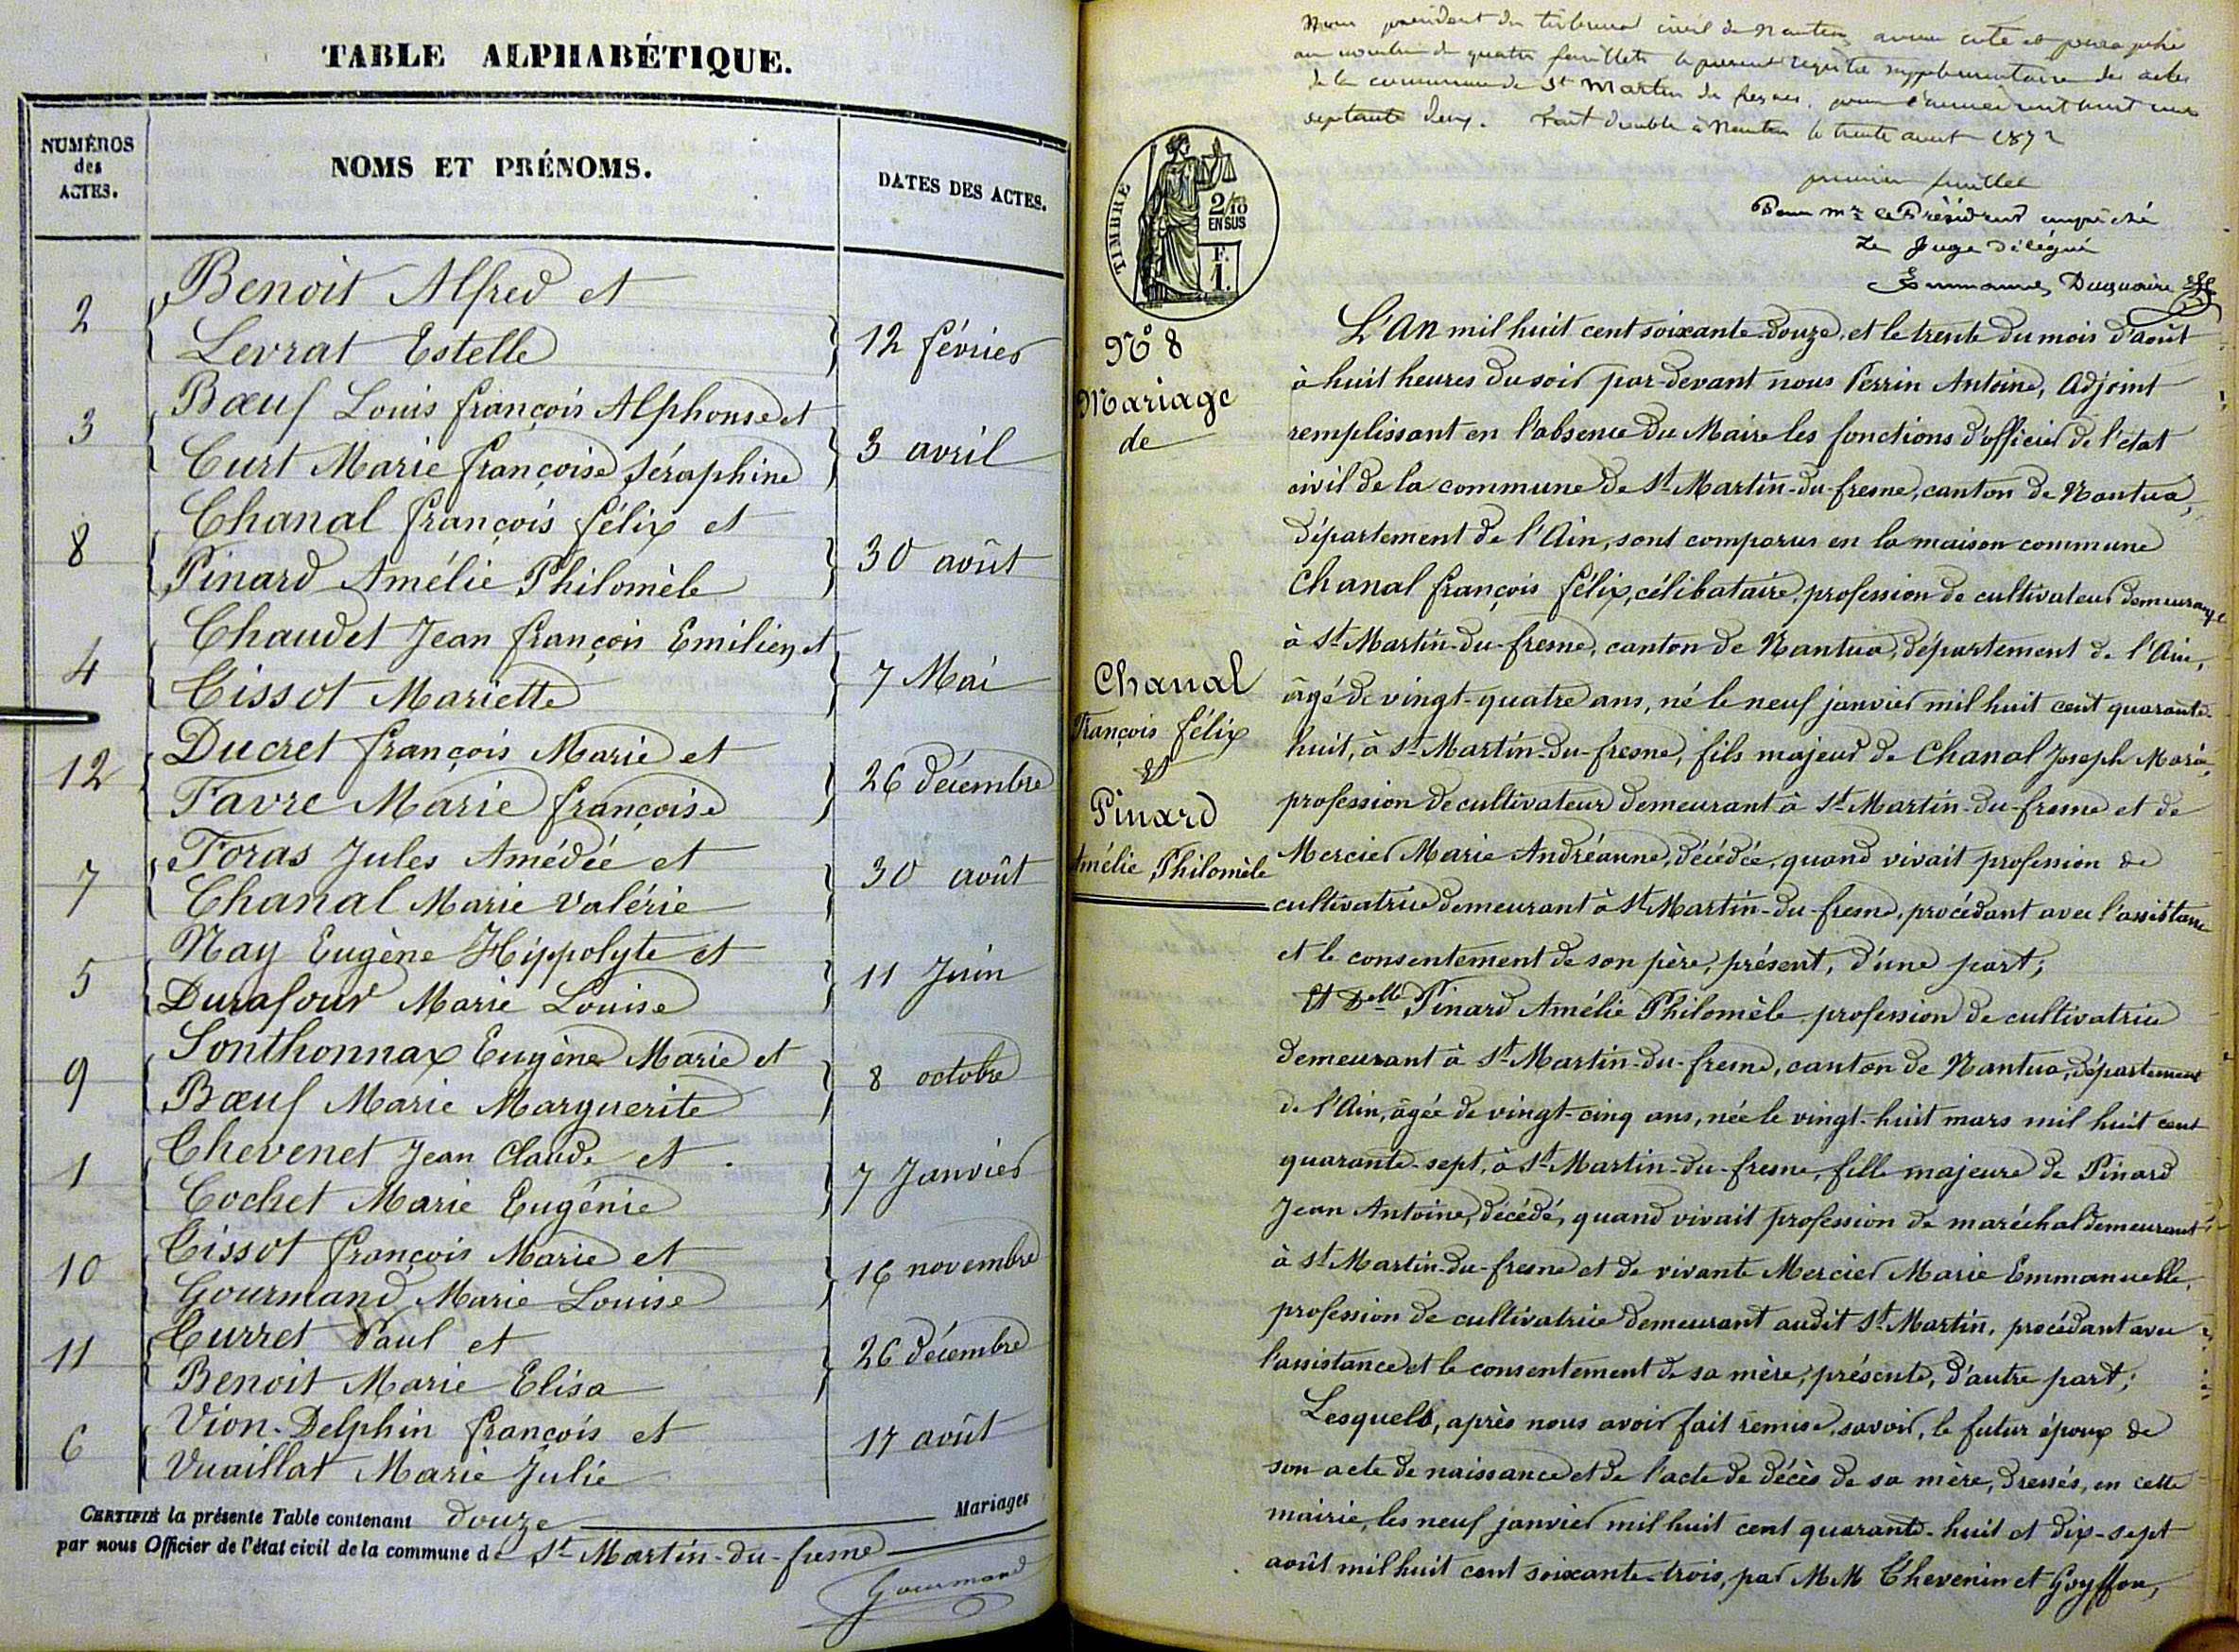 TABLE ALPHABÉTIQUE.
NUMÉROS
des
ACTES.
NOMS ET PRÉNOMS.
DATES DES ACTES.
2
Benoit Alfred et
Levrat Estelle
12 février
3
Bœuf Louis françois Alphonse et
Curt Marie françoise Séraphine
3 avril
8
Chanal françois félix et
Pinard Amélie Philomèle
30 août
4
Chaudet Jean françois Emilien et
Tissot Mariette
7 Mai
12
Ducret françois Marie et
Favre Marie françoise
26 décembre
7
Foras Jules Amédée et
Chanal Marie Valérie
30 août
5
Nay Eugène Hippolyte et
Durafour Marie Louise
11 Juin
9
Sonthonnax Eugène Marie et
Bœuf Marie Marguerite
8 octobre
1
Thevenet Jean Claude et
Cochet Marie Eugénie
7 Janvier
10
Tissot françois Marie et
Gourmand Marie Louise
16 novembre
11
Turret Paul et
Benoit Marie Elisa
26 décembre
6
Vion-Delphin françois et
Vuaillat Marie Julie
17 août
CERTIFIÉ la présente Table contenant douze Mariages
par nous Officier de l'état civil de la commune de St Martin-du-fresne
Gourmand
Nous président du tribunal civil de Nantua, avons coté et paraphé
au nombre de quatre feuillets le present registre supplementaire des actes
de la commune de St Martin du fresnes, pour l'année mil huit cent
septante deux. Fait double à Nantua le trente août 1872
premier feuillet
Pour Mr le Président empêché
Le Juge Délégué
Emmanuel Duquaire
TIMBRE
2/10
EN SUS
F.
1.
No 8
Mariage
de
Chanal
François félix
Et
Pinard
Amélie Philomèle
L'An mil huit cent soixante-douze, et le trente du mois d'août
à huit heures du soir par-devant nous Perrin Antoine, Adjoint
remplissant en l'absence du Maire les fonctions d'officier de l'état
civil de la commune de St Martin-du-fresne, canton de Nantua,
département de l'Ain, sont comparus en la maison commune
Chanal françois félix, célibataire, profession de cultivateur demeurant
à St Martin-du-fresne, canton de Nantua, département de l'Ain,
âgé de vingt-quatre ans, né le neuf janvier mil huit cent quarante-
huit, à St Martin-du-fresne, fils majeur de Chanal Joseph Marie,
profession de cultivateur demeurant à St Martin-du-fresne et de
Mercier Marie Andréanne, décédée, quand vivait profession de
cultivatrice demeurant à St Martin-du-fresne, procédant avec l'assistance
et le consentement de son père, présent, d'une part;
Et Delle Pinard Amélie Philomèle profession de cultivatrice
demeurant à St Martin-du-fresne, canton de Nantua, département
de l'Ain, âgée de vingt-cinq ans, née le vingt-huit mars mil huit cent
quarante-sept, à St Martin-du-fresne, fille majeure de Pinard
Jean Antoine, décédé, quand vivait profession de maréchal demeurant
à St Martin-du-fresne et de vivante Mercier Marie Emmanuelle,
profession de cultivatrice demeurant audit St Martin, procédant avec
l'assistance et le consentement de sa mère, présente, d'autre part;
Lesquels, après nous avoir fait remise, savoir, le futur époux de
son acte de naissance et de l'acte de décès de sa mère, dressés, en cette
mairie, les neuf janvier mil huit cent quarante-huit et dix-sept
août mil huit cent soixante-trois, par MM Thevenin et Goyffon,